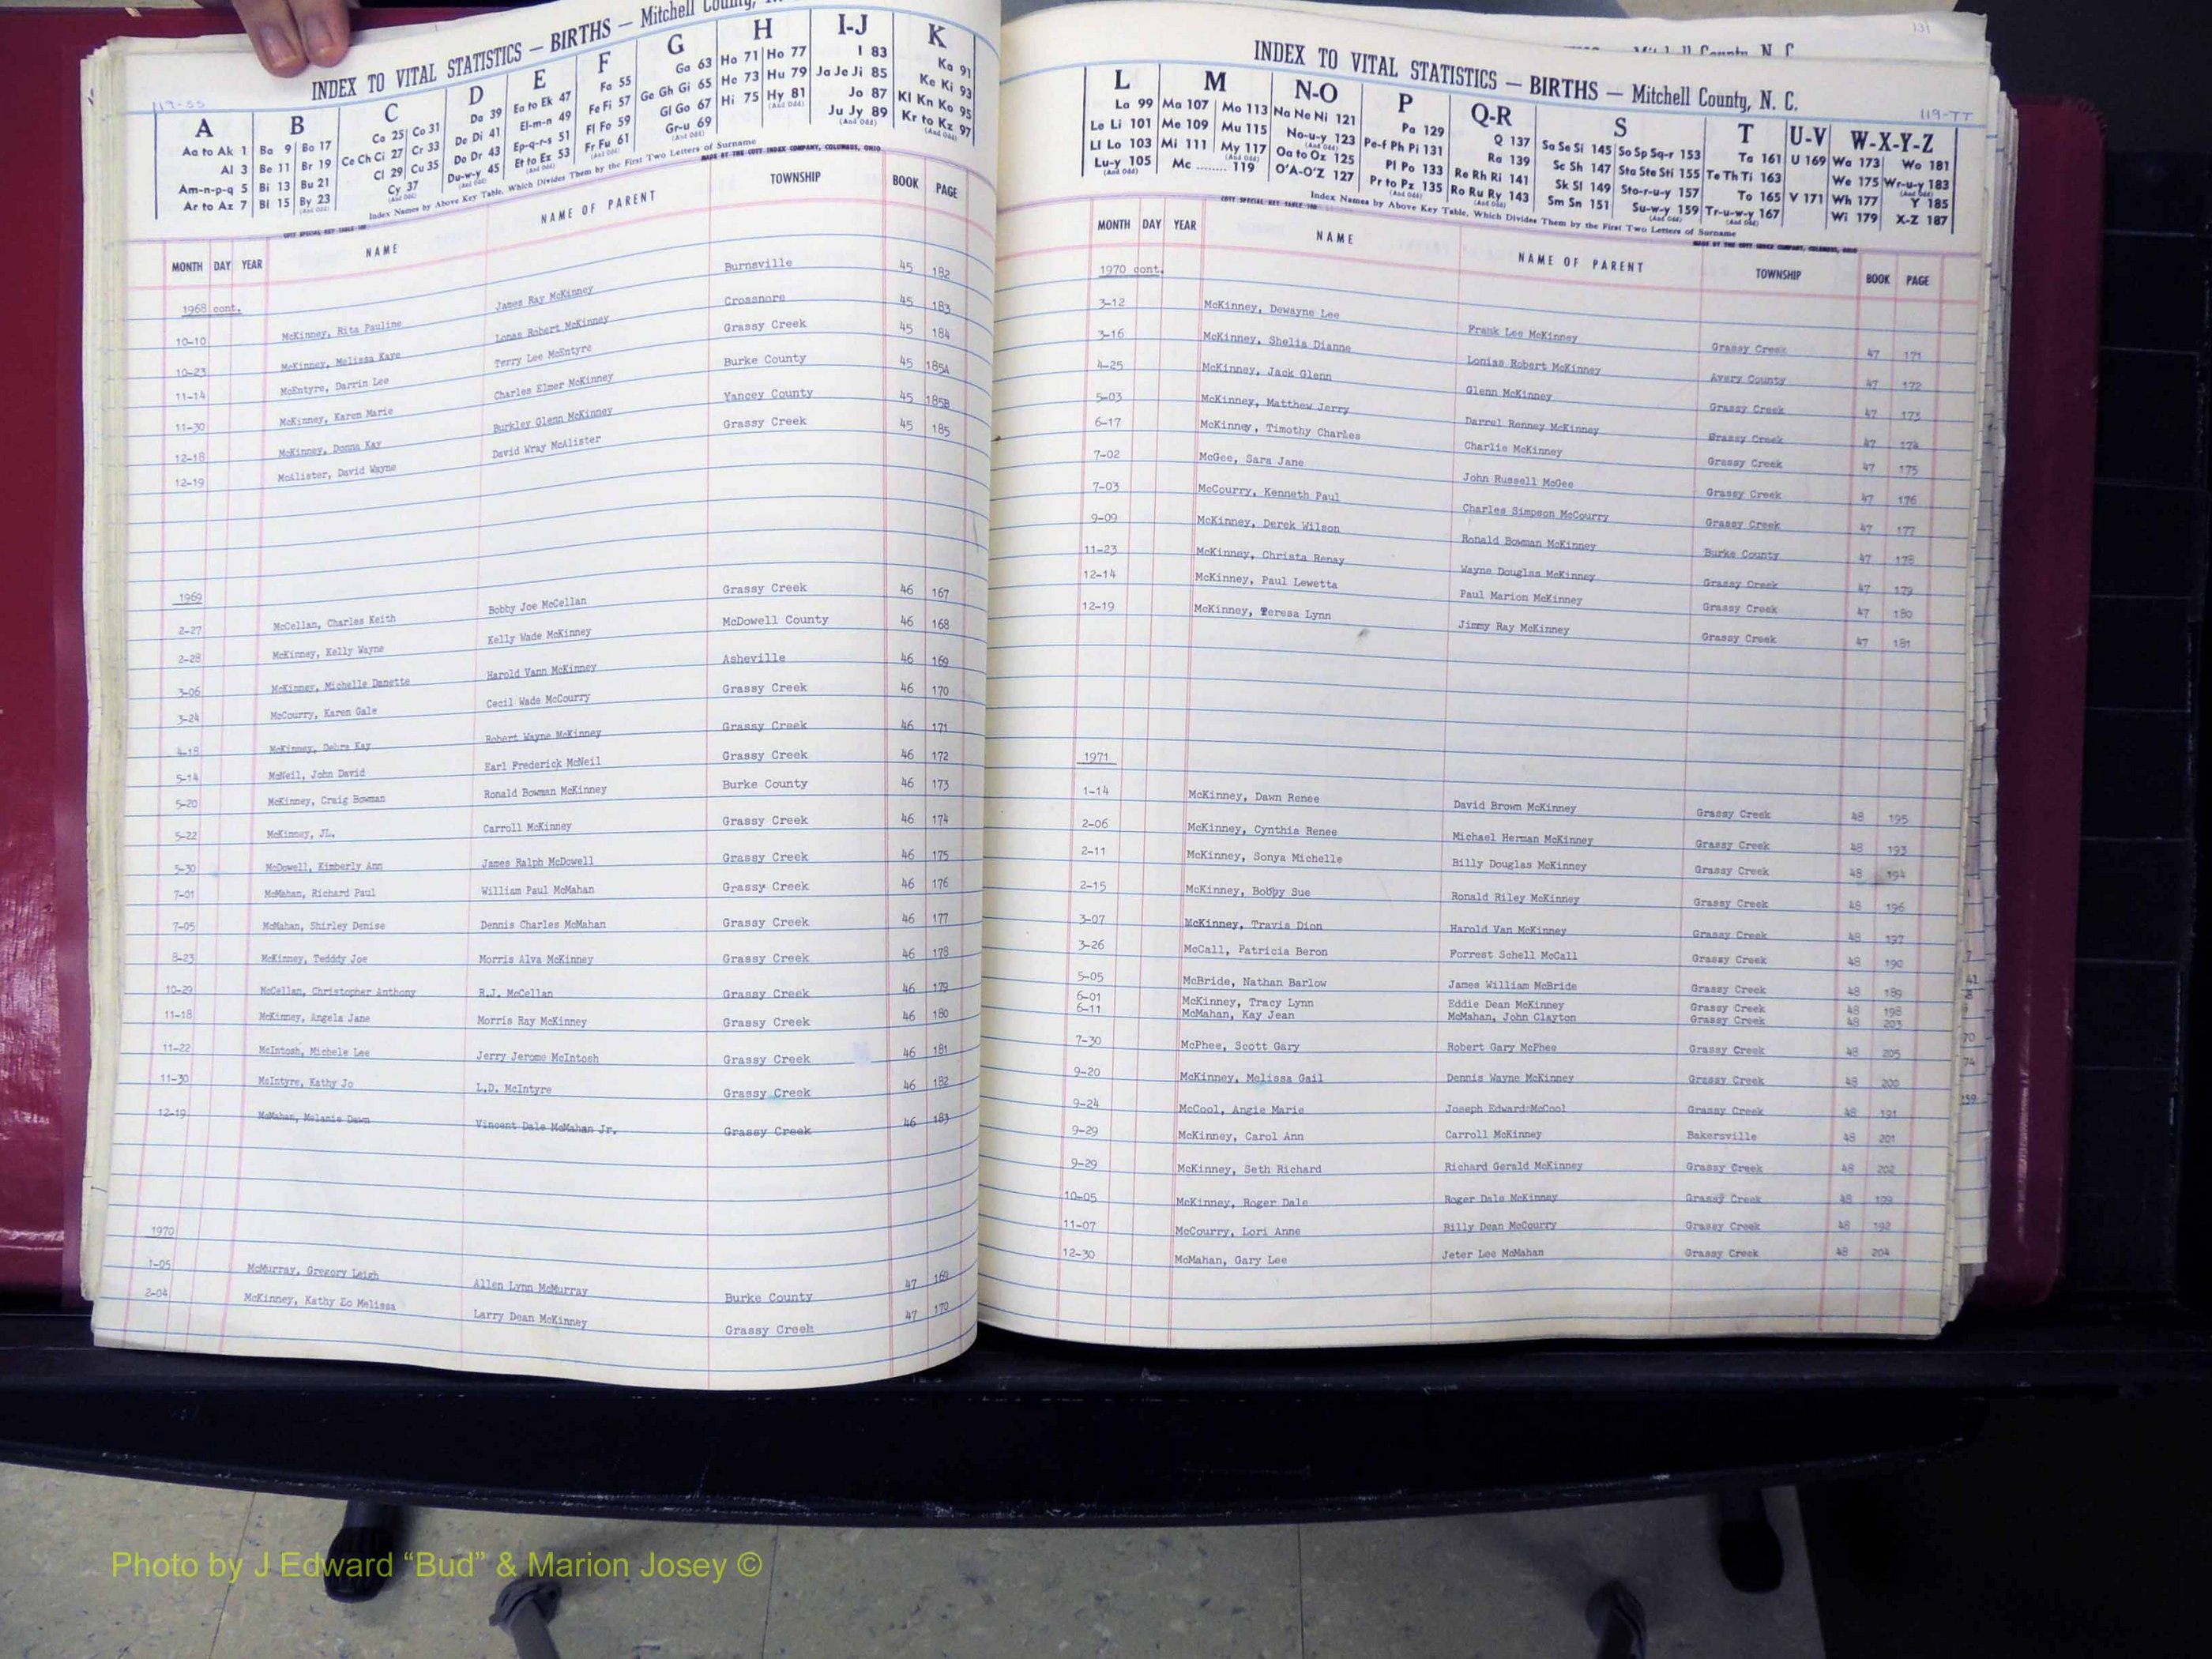 INDEX TO VITAL STATISTICS — BIRTHS — Mitchell County,
119-SS
A B C D E F G H I-J K
Aa to Ak 1 Ba 9 Bo 17 Ca 25 Co 31 Da 39 Ea to Ek 47 Fa 55 Ga 63 Ha 71 Ho 77 I 83 Ka 91
Al 3 Be 11 Br 19 Ce Ch Ci 27 Cr 33 De Di 41 El-m-n 49 Fe Fi 57 Ge Gh Gi 65 He 73 Hu 79 Ja Je Ji 85 Ke Ki 93
Am-n-p-q 5 Bi 13 Bu 21 Cl 29 Cu 35 Do Dr 43 Ep-q-r-s 51 Fl Fo 59 Gl Go 67 Hi 75 Hy 81 Jo 87 Kl Kn Ko 95
Ar to Az 7 Bl 15 By 23 Cy 37 Du-w-y 45 Et to Ez 53 Fr Fu 61 Gr-u 69 Ju Jy 89 Kr to Kz 97
Index Names by Above Key Table, Which Divides Them by the First Two Letters of Surname
COTT SPECIAL KEY TABLE 100 MADE BY THE COTT INDEX COMPANY, COLUMBUS, OHIO
MONTH DAY YEAR NAME NAME OF PARENT TOWNSHIP BOOK PAGE
1968 cont.
10-10 McKinney, Rita Pauline James Ray McKinney Burnsville 45 182
10-23 McKinney, Melissa Kaye Lonas Robert McKinney Crossnore 45 183
11-14 McEntyre, Darrin Lee Terry Lee McEntyre Grassy Creek 45 184
11-30 McKinney, Karen Marie Charles Elmer McKinney Burke County 45 185A
12-18 McKinney, Donna Kay Burkley Glenn McKinney Yancey County 45 185B
12-19 McAlister, David Wayne David Wray McAlister Grassy Creek 45 185
1969
2-27 McCellan, Charles Keith Bobby Joe McCellan Grassy Creek 46 167
2-28 McKinney, Kelly Wayne Kelly Wade McKinney McDowell County 46 168
3-06 McKinney, Michelle Danette Harold Vann McKinney Asheville 46 169
3-24 McCourry, Karen Gale Cecil Wade McCourry Grassy Creek 46 170
4-18 McKinney, Debra Kay Robert Wayne McKinney Grassy Creek 46 171
5-14 McNeil, John David Earl Frederick McNeil Grassy Creek 46 172
5-20 McKinney, Craig Bowman Ronald Bowman McKinney Burke County 46 173
5-22 McKinney, JL. Carroll McKinney Grassy Creek 46 174
5-30 McDowell, Kimberly Ann James Ralph McDowell Grassy Creek 46 175
7-01 McMahan, Richard Paul William Paul McMahan Grassy Creek 46 176
7-05 McMahan, Shirley Denise Dennis Charles McMahan Grassy Creek 46 177
8-23 McKinney, Tedddy Joe Morris Alva McKinney Grassy Creek 46 178
10-29 McCellan, Christopher Anthony R.J. McCellan Grassy Creek 46 179
11-18 McKinney, Angela Jane Morris Ray McKinney Grassy Creek 46 180
11-22 McIntosh, Michele Lee Jerry Jerome McIntosh Grassy Creek 46 181
11-30 McIntyre, Kathy Jo L.D. McIntyre Grassy Creek 46 182
12-19 McMahan, Melanie Dawn Vincent Dale McMahan Jr. Grassy Creek 46 183
1970
1-05 McMurray, Gregory Leigh Allen Lynn McMurray Burke County 47 169
2-04 McKinney, Kathy Zo Melissa Larry Dean McKinney Grassy Creek 47 170
131
INDEX TO VITAL STATISTICS — BIRTHS — Mitchell County, N. C.
119-TT
L M N-O P Q-R S T U-V W-X-Y-Z
La 99 Ma 107 Mo 113 Na Ne Ni 121 Pa 129 Q 137 Sa Se Si 145 So Sp Sq-r 153 Ta 161 U 169 Wa 173 Wo 181
Le Li 101 Me 109 Mu 115 No-u-y 123 Pe-f Ph Pi 131 Ra 139 Sc Sh 147 Sta Ste Sti 155 Te Th Ti 163 We 175 Wr-u-y 183
Ll Lo 103 Mi 111 My 117 Oa to Oz 125 Pl Po 133 Re Rh Ri 141 Sk Sl 149 Sto-r-u-y 157 To 165 V 171 Wh 177 Y 185
Lu-y 105 Mc ........ 119 O'A-O'Z 127 Pr to Pz 135 Ro Ru Ry 143 Sm Sn 151 Su-w-y 159 Tr-u-w-y 167 Wi 179 X-Z 187
Index Names by Above Key Table, Which Divides Them by the First Two Letters of Surname
COTT SPECIAL KEY TABLE 100 MADE BY THE COTT INDEX COMPANY, COLUMBUS, OHIO
MONTH DAY YEAR NAME NAME OF PARENT TOWNSHIP BOOK PAGE
1970 cont.
3-12 McKinney, Dewayne Lee Frank Lee McKinney Grassy Creek 47 171
3-16 McKinney, Shelia Dianne Lonias Robert McKinney Avery County 47 172
4-25 McKinney, Jack Glenn Glenn McKinney Grassy Creek 47 173
5-03 McKinney, Matthew Jerry Darrel Renney McKinney Grassy Creek 47 174
6-17 McKinney, Timothy Charles Charlie McKinney Grassy Creek 47 175
7-02 McGee, Sara Jane John Russell McGee Grassy Creek 47 176
7-03 McCourry, Kenneth Paul Charles Simpson McCourry Grassy Creek 47 177
9-09 McKinney, Derek Wilson Ronald Bowman McKinney Burke County 47 178
11-23 McKinney, Christa Renay Wayne Douglas McKinney Grassy Creek 47 179
12-14 McKinney, Paul Lewetta Paul Marion McKinney Grassy Creek 47 180
12-19 McKinney, Teresa Lynn Jimmy Ray McKinney Grassy Creek 47 181
1971
1-14 McKinney, Dawn Renee David Brown McKinney Grassy Creek 48 195
2-06 McKinney, Cynthia Renee Michael Herman McKinney Grassy Creek 48 193
2-11 McKinney, Sonya Michelle Billy Douglas McKinney Grassy Creek 48 194
2-15 McKinney, Bobby Sue Ronald Riley McKinney Grassy Creek 48 196
3-07 McKinney, Travis Dion Harold Van McKinney Grassy Creek 48 197
3-26 McCall, Patricia Beron Forrest Schell McCall Grassy Creek 48 190
5-05 McBride, Nathan Barlow James William McBride Grassy Creek 48 189
6-01 McKinney, Tracy Lynn Eddie Dean McKinney Grassy Creek 48 198
6-11 McMahan, Kay Jean McMahan, John Clayton Grassy Creek 48 203
7-30 McPhee, Scott Gary Robert Gary McPhee Grassy Creek 48 205
9-20 McKinney, Melissa Gail Dennis Wayne McKinney Grassy Creek 48 200
9-24 McCool, Angie Marie Joseph Edward McCool Grassy Creek 48 191
9-29 McKinney, Carol Ann Carroll McKinney Bakersville 48 201
9-29 McKinney, Seth Richard Richard Gerald McKinney Grassy Creek 48 202
10-05 McKinney, Roger Dale Roger Dale McKinney Grassy Creek 48 199
11-07 McCourry, Lori Anne Billy Dean McCourry Grassy Creek 48 192
12-30 McMahan, Gary Lee Jeter Lee McMahan Grassy Creek 48 204
Photo by J Edward “Bud” & Marion Josey ©